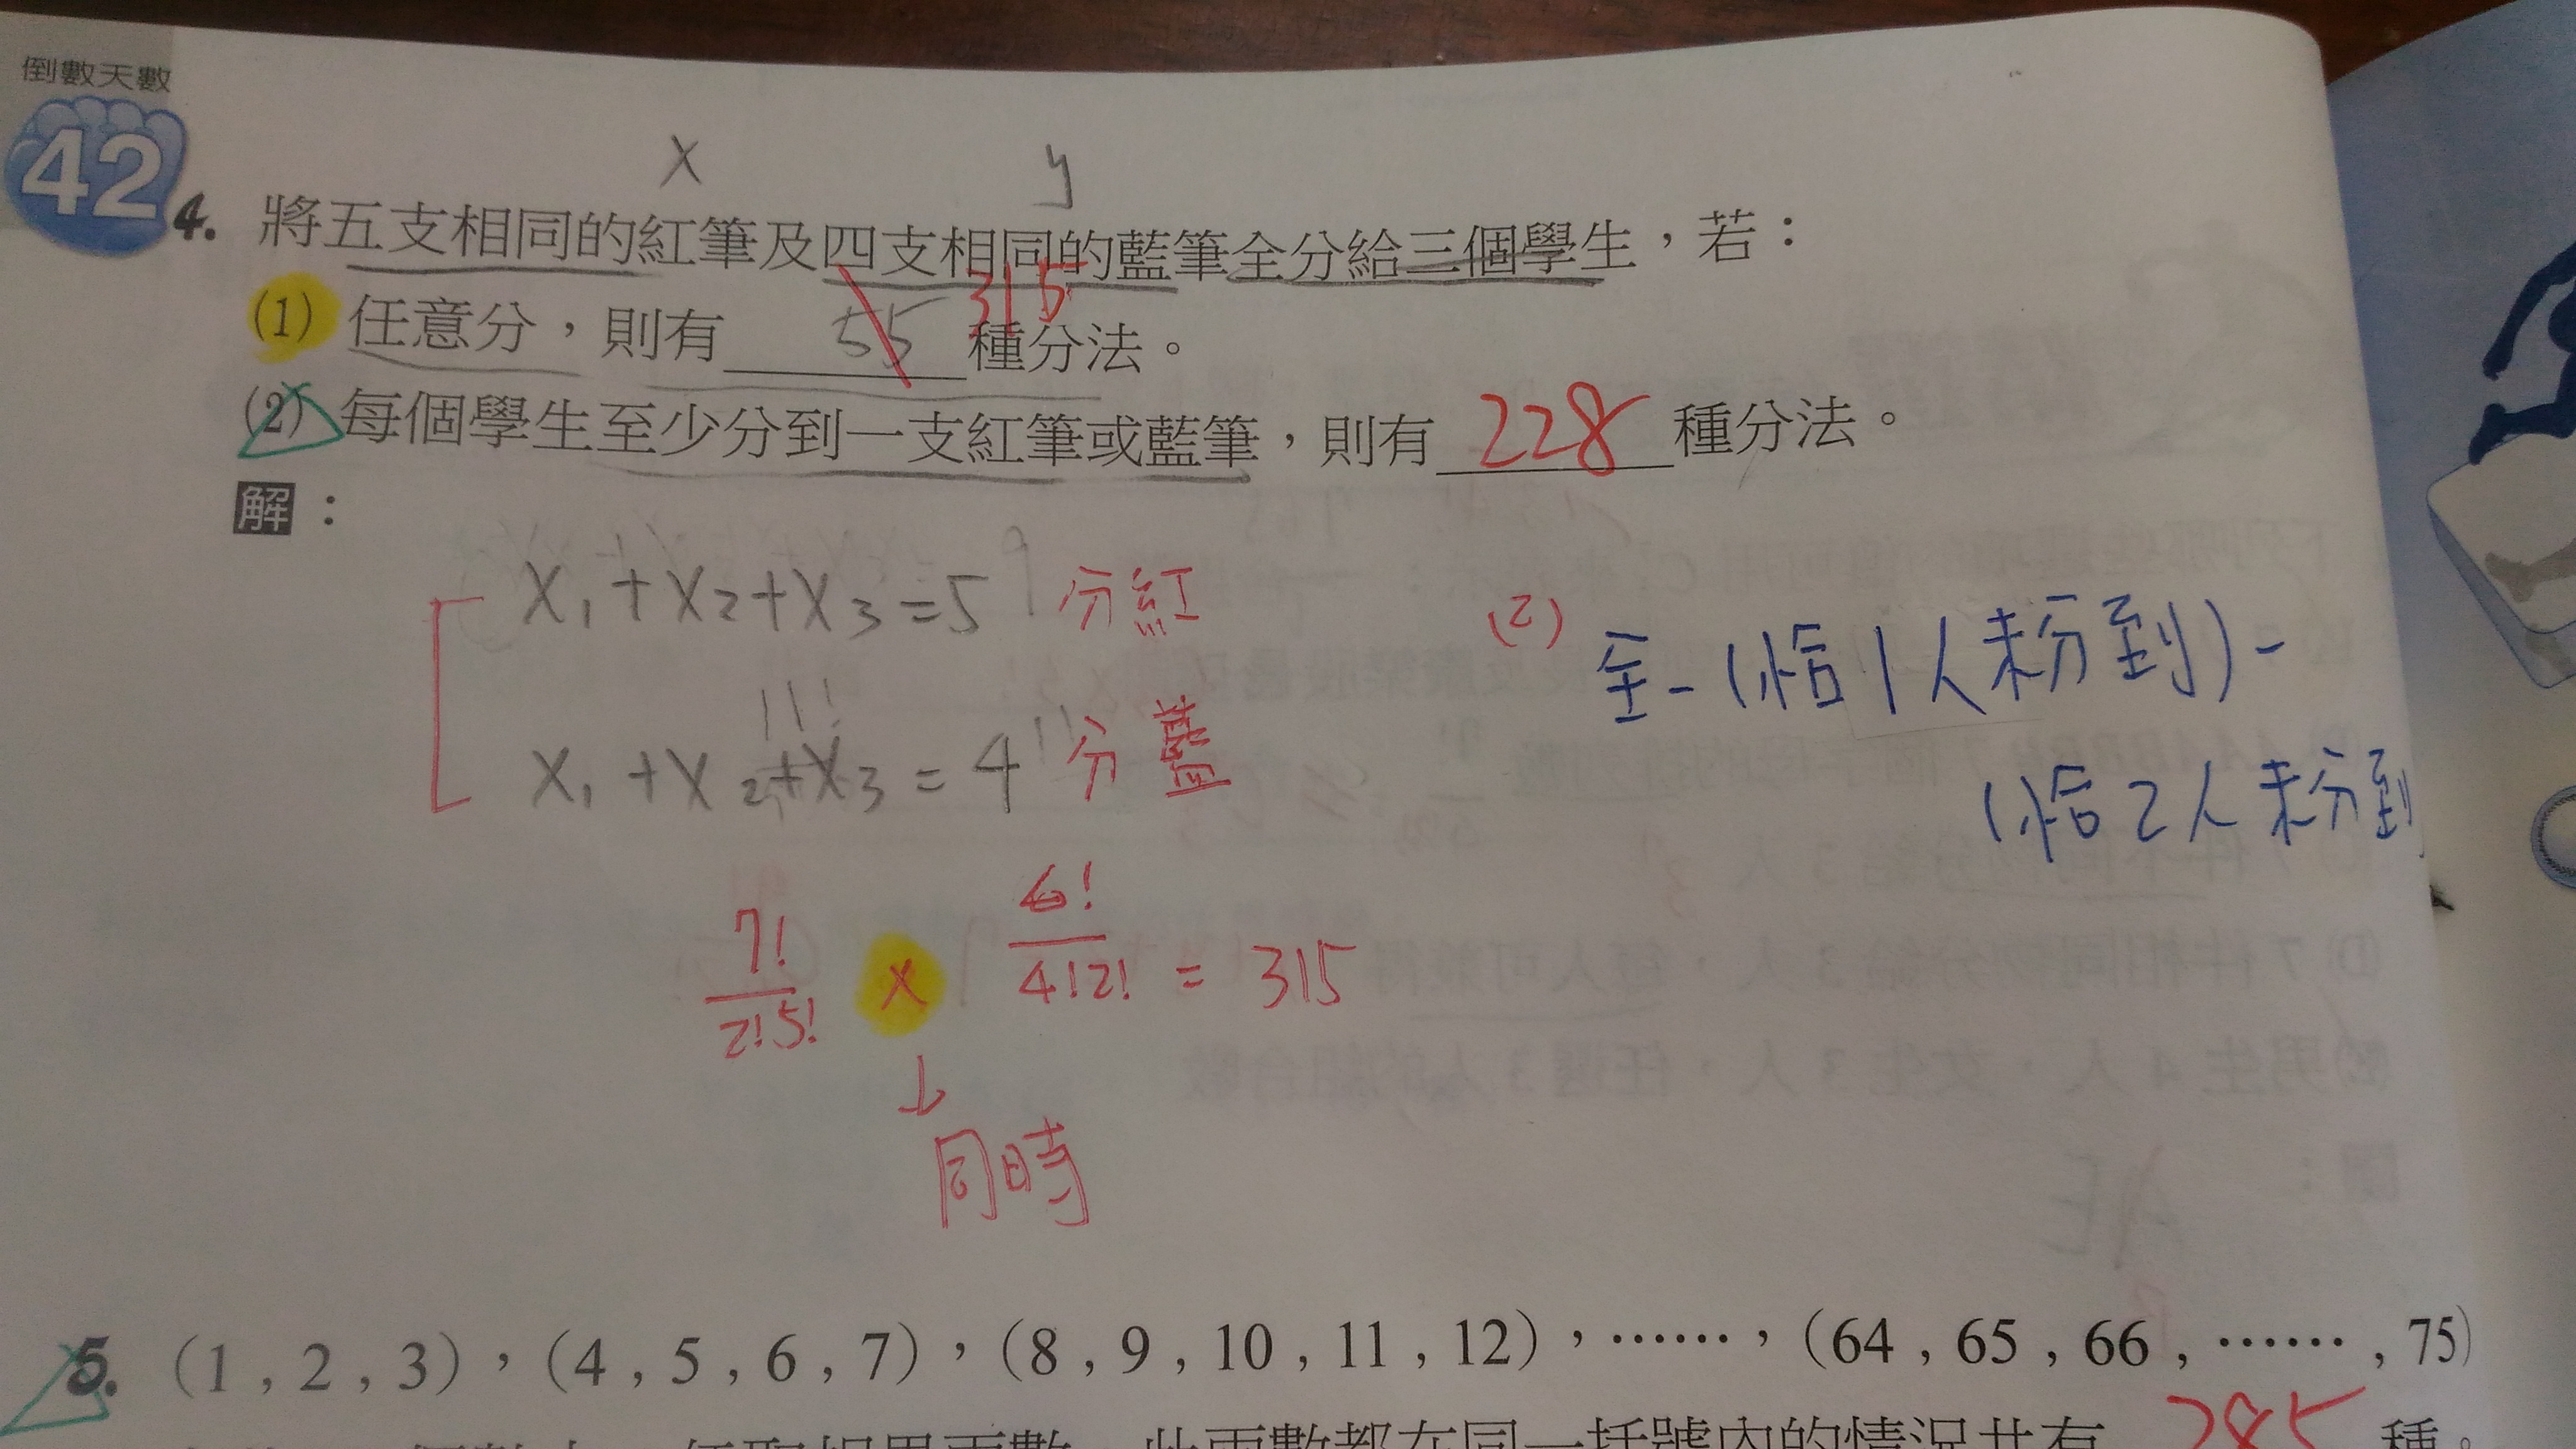 倒數天數
42
x y
4. 將五支相同的紅筆及四支相同的藍筆全分給三個學生，若：
(1) 任意分，則有 55 315 種分法。
(2) 每個學生至少分到一支紅筆或藍筆，則有 228 種分法。
解：
x₁+x₂+x₃=5 分紅
11!
x₁+x₂+x₃=4 分藍
7!/2!5! × 6!/4!2! = 315
↓
同時
(2) 全-(恰1人未分到)-
(恰2人未分到
5. (1 , 2 , 3)，(4 , 5 , 6 , 7)，(8 , 9 , 10 , 11 , 12)，……，(64 , 65 , 66 , …… , 75)
285 種。